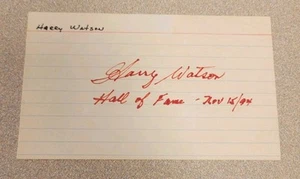 Harry Watson
Harry Watson
Hall of Fame - Nov 15/94